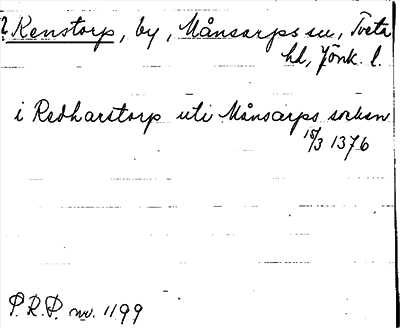 ? Renstorp, by, Månsarps sn, Tveta
hd, Jönk. l.
i Redharstorp uti Månsarps sokn
15/3 1376
P.R.P. nr. 1199